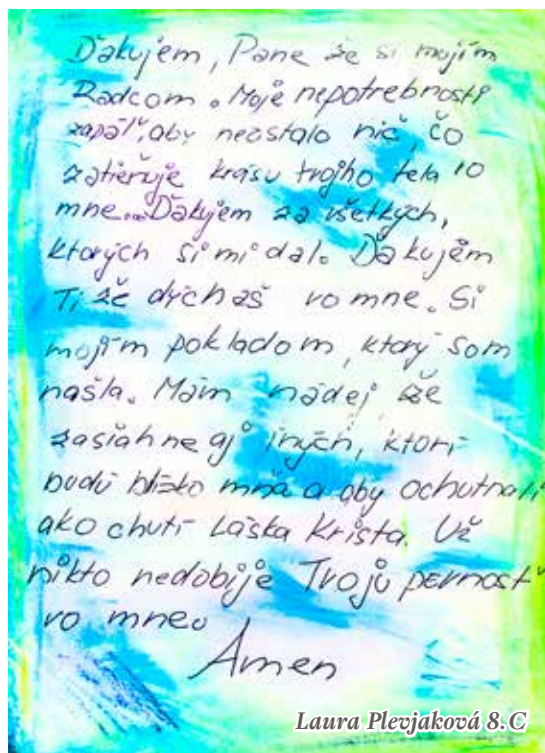 Ďakujem, Pane že si mojím
Radcom. Moje nepotrebnosti
zapáľ, aby neostalo nič, čo
zatieňuje krásu tvojho tela vo
mne... Ďakujem za všetkých,
ktorých si mi dal. Ďakujem
Ti že dýchaš vo mne. Si
mojím pokladom, ktorý som
našla. Mám nádej že
zasiahne aj iných, ktorí
budú blízko mňa a aby ochutnali
ako chutí Láska Krista. Už
nikto nedobije Tvojú pevnosť
vo mne.
Amen
Laura Plevjaková 8.C